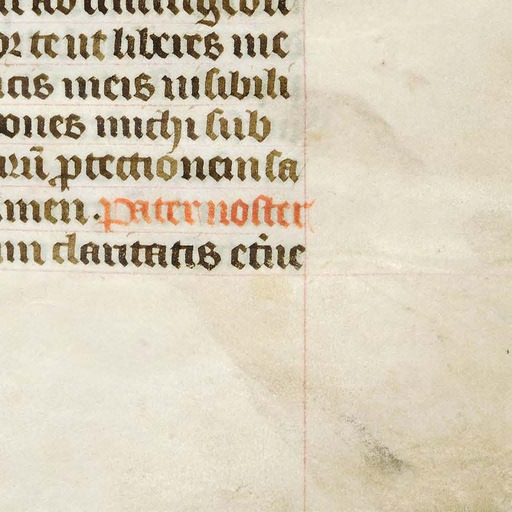 or te ut liberes me
meis inisibili
ones michi sub
arū ꝓtectionem sa
men. Pater noster
m claritatis et̄ne